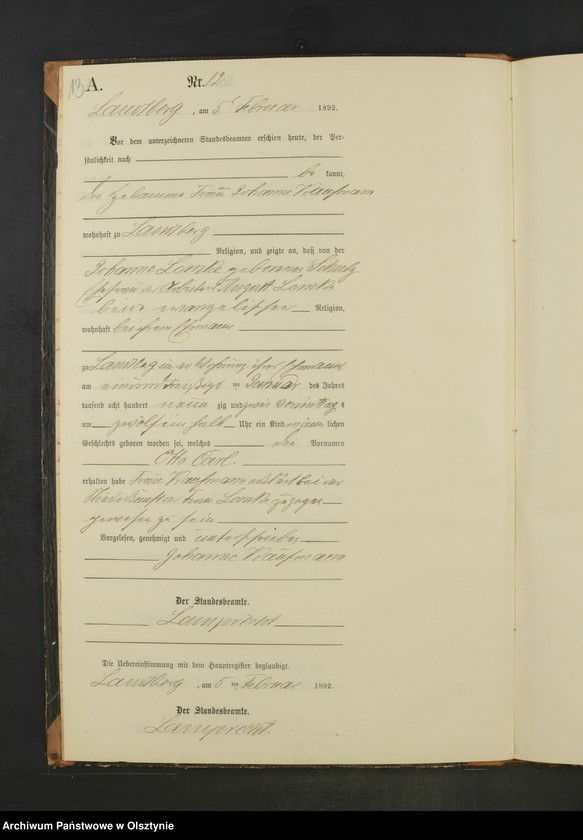 13 A. Nr. 12.
Landsberg, am 5t Februar 1892.
Vor dem unterzeichneten Standesbeamten erschien heute, der Per-
sönlichkeit nach
be kannt,
die Hebamme Frau Johanne Kaufmann
wohnhaft zu Landsberg
Religion, und zeigte an, daß von der
Johanne Lemke geborenen Schulz
Ehefrau des Arbeiters August Lemke
beide evangelischer Religion,
wohnhaft bei ihrem Ehemann
zu Landsberg in der Wohnung ihres Ehemanns
am einunddreißigsten ten Januar des Jahres
tausend acht hundert neun zig und zwei Vormittags
um zwölfeinhalb Uhr ein Kind männ lichen
Geschlechts geboren worden sei, welches die Vornamen
Otto Carl.
erhalten habe Frau Kaufmann erklärt bei der
Niederkunft der Frau Lemke zugegen
gewesen zu sein
Vorgelesen, genehmigt und unterschrieben
Johanne Kaufmann
Der Standesbeamte.
Lamprecht
Die Uebereinstimmung mit dem Hauptregister beglaubigt.
Landsberg, am 5 ten Februar 1892.
Der Standesbeamte.
Lamprecht.
Archiwum Państwowe w Olsztynie